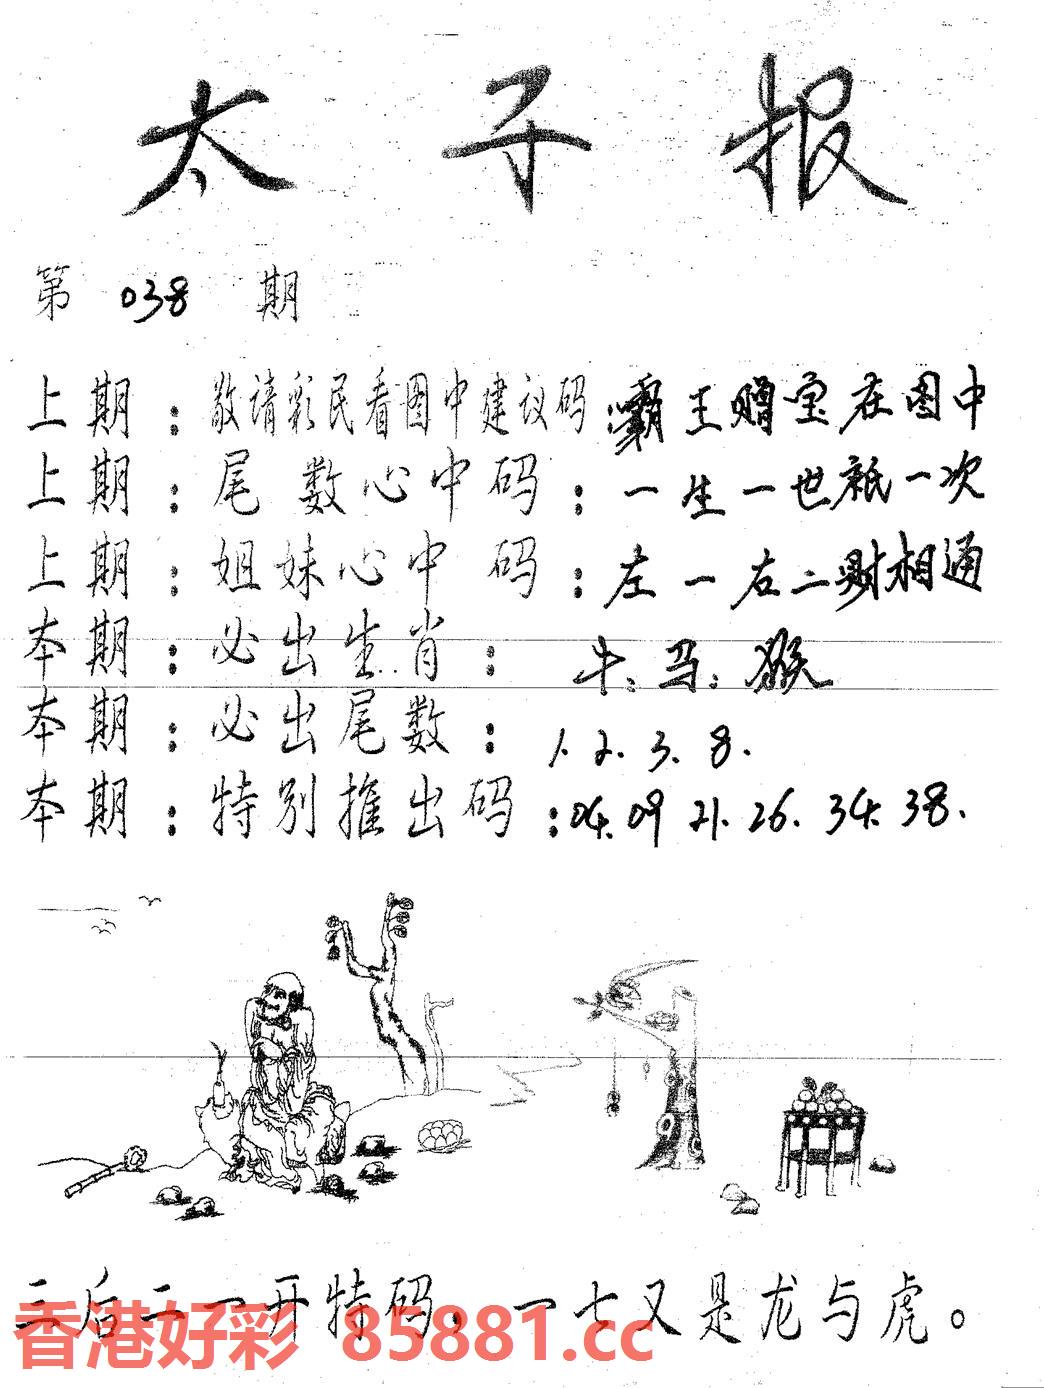 太子报
第 038 期
上期：敬请彩民看图中建议码：霸王赠宝在图中
上期：尾数心中码：一生一世祇一次
上期：姐妹心中码：左一右二财相通
本期：必出生肖：牛.马.猴
本期：必出尾数：1.2.3.8.
本期：特别推出码：04.09 21.26.34.38.
二后二一开特码，一七又是龙与虎。
香港好彩 85881.cc